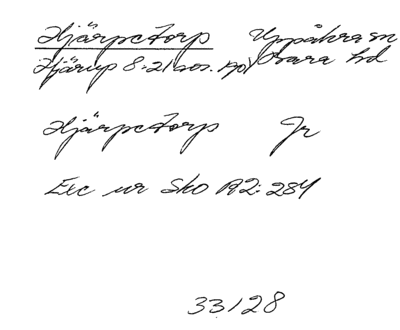 Hjärpetorp Uppåkra sn
Hjärup 8:21 sos. 1901 Bara hd
Hjärpetorp Jr
Exc ur Sko A2:284
33128